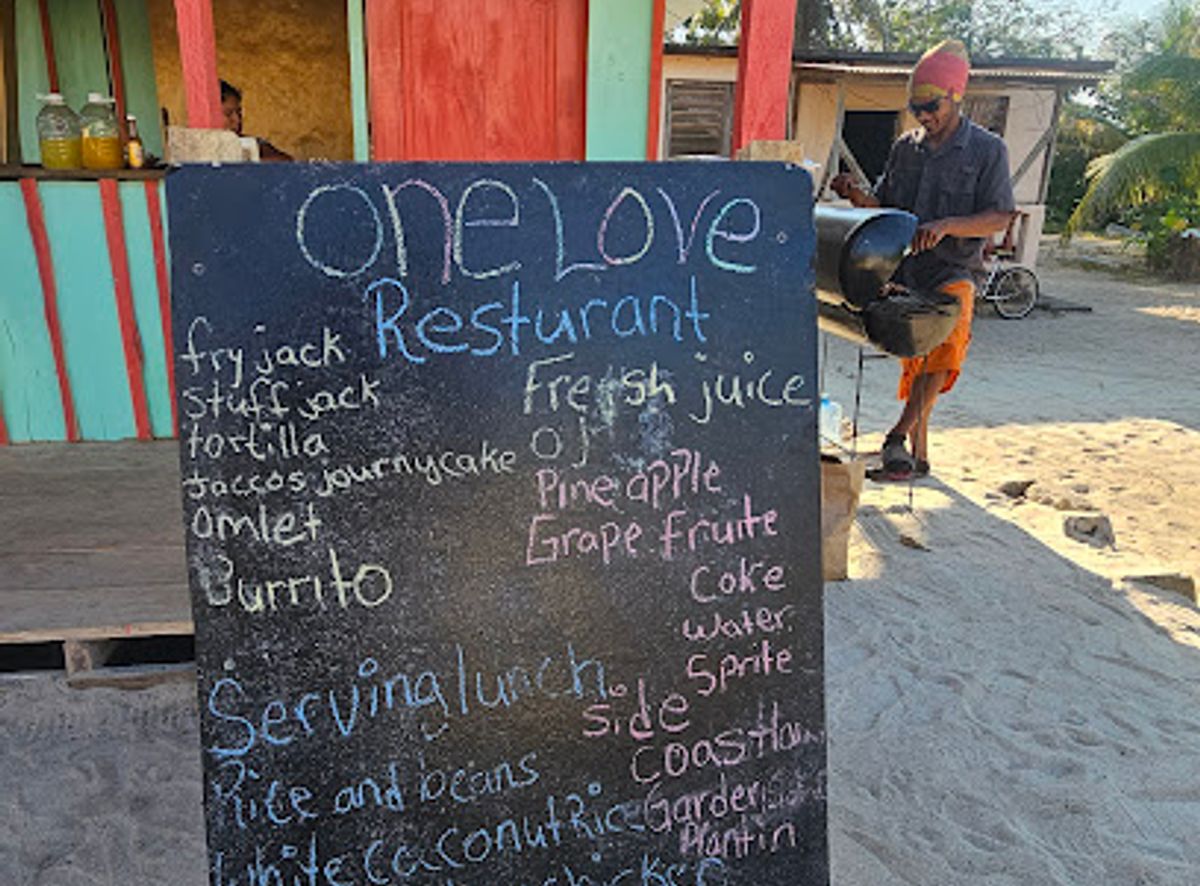 oneLove
Resturant
fry jack
stuff jack
tortilla
taccos journycake
omlet
Burrito
Fresh juice
oj
Pineapple
Grape fruite
Coke
water
Sprite
Serving lunch
Rice and beans
white cacconut Rice
chicken
side
Garden
Plantin